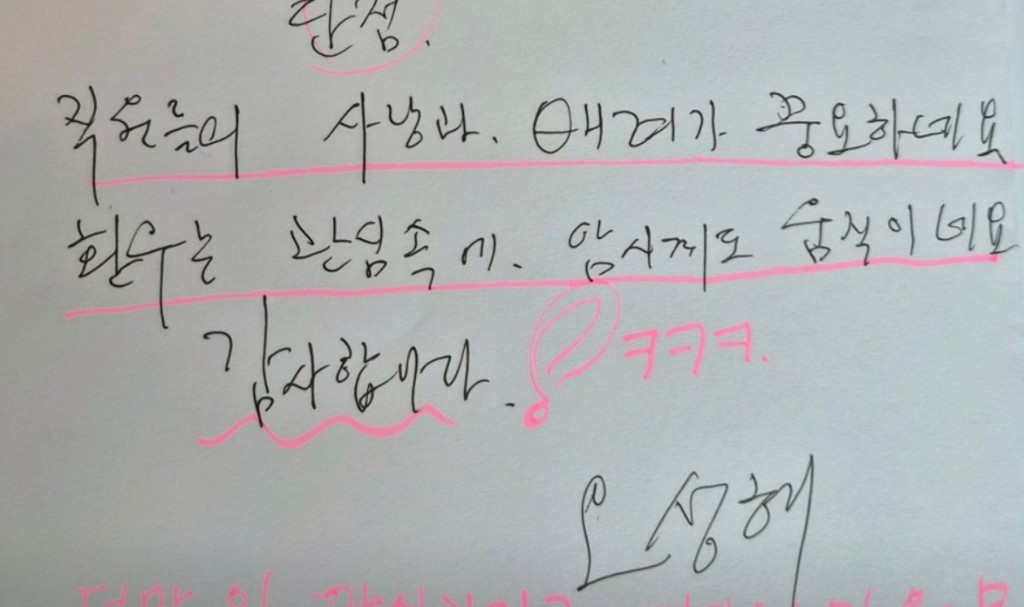 단점.
직원들의 사랑과. 배려가 중요하네요
환우는 관심속에. 암시케도 움직이네요
감사합니다. ㅋㅋㅋ.
오성해